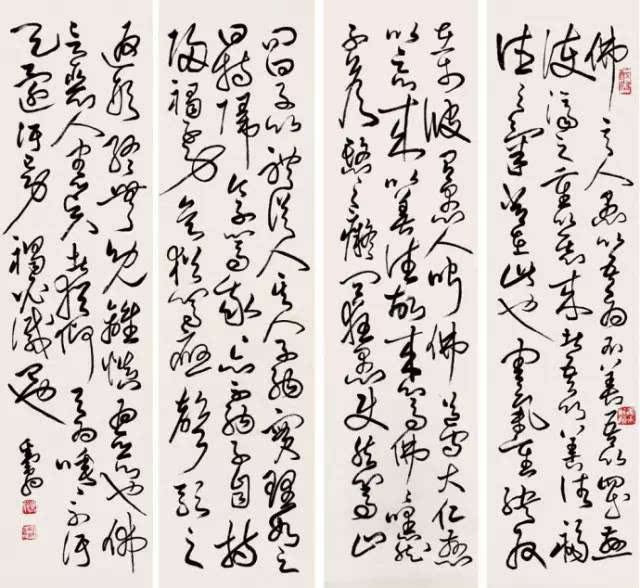 佛言人愚以吾為不善吾以四等慈
護濟之重以惡來者吾以善往福
德之氣常在此也害氣重殃反
在于彼有愚人聞佛道守大仁慈
以惡來以善往故來罵佛佛嘿然
不答愍之癡冥狂愚使然罵止
問曰子以禮從人其人不納實禮如之
曰持歸今子罵我我亦不納子自持
歸禍子身矣猶響應聲影之
追形終無免離慎為惡也佛
言惡人害賢者猶仰天而唾唾不污
天還污己身禍必滅己也